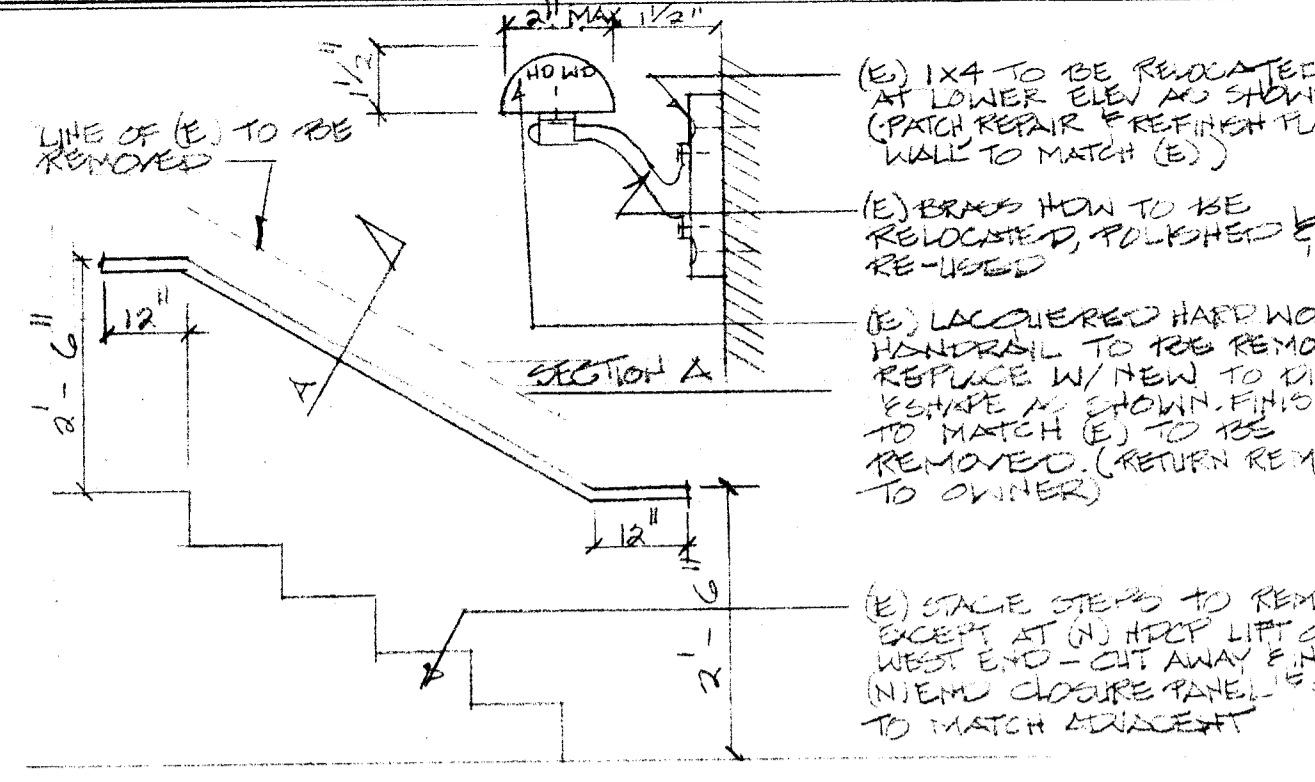 2" MAX
1 1/2"
1 1/2"
HD WD
LINE OF (E) TO BE
REMOVED
(E) 1X4 TO BE RELOCATED
AT LOWER ELEV AS SHOW
(PATCH, REPAIR & REFINISH PLA
WALL TO MATCH (E))
(E) BRASS HDW TO BE
RELOCATED, POLISHED &
RE-USED
(E) LACQUERED HARD WO
HANDRAIL TO BE REMO
REPLACE W/ NEW TO DI
& SHAPE AS SHOWN. FINIS
TO MATCH (E) TO BE
REMOVED. (RETURN REM
TO OWNER)
SECTION A
A
12"
2'-6"
12"
2'-6"
(E) STAGE STEPS TO REM
EXCEPT AT (N) HDCP LIFT
WEST END - CUT AWAY & IN
(N) END CLOSURE PANEL
TO MATCH ADJACENT